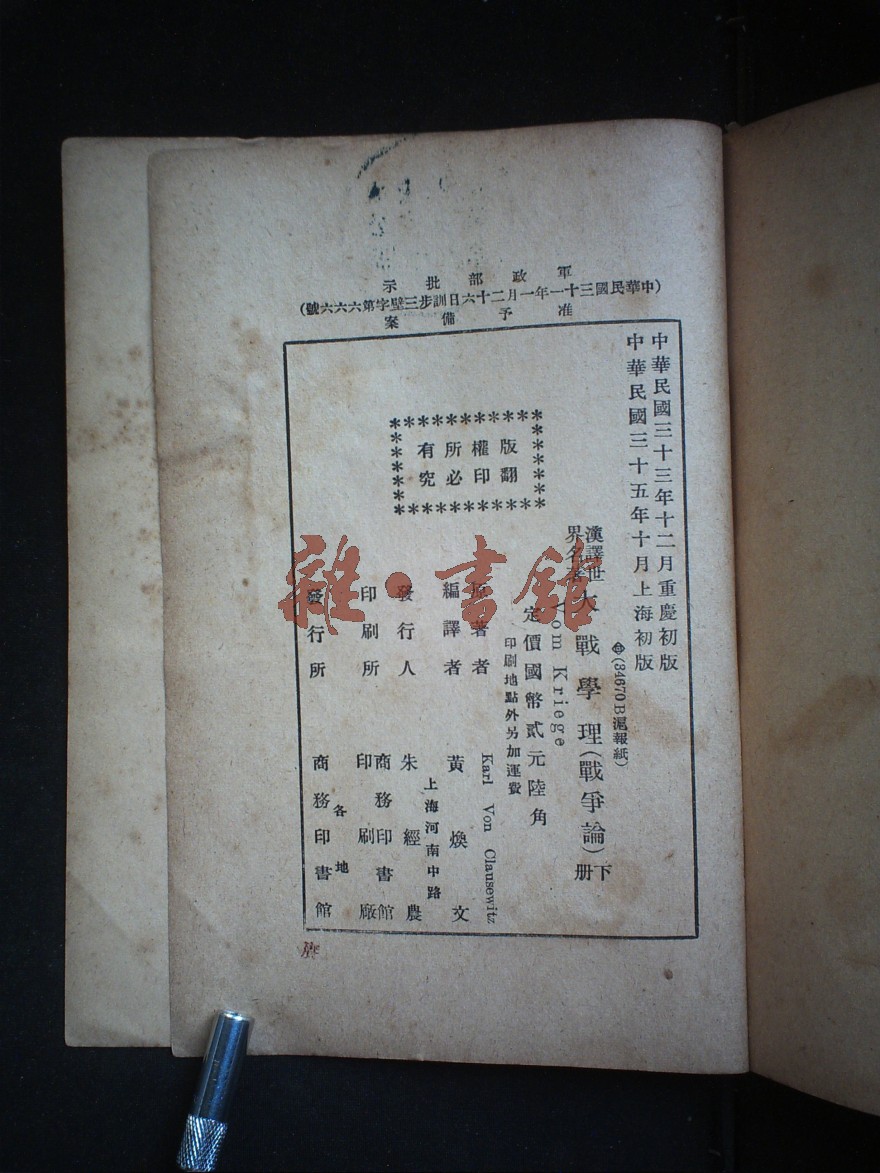 軍政部批示
(中華民國三十一年一月二十六日訓步三壁字第六六六號)
准予備案
中華民國三十三年十二月重慶初版
中華民國三十五年十月上海初版
(34670B滬報紙)
漢譯世界名著
大戰學理(戰爭論)下册
Vom Kriege
定價國幣貳元陸角
印刷地點外另加運費
版權所有
翻印必究
原著者 Karl Von Clausewitz
編譯者 黃煥文
發行人 朱經農
上海河南中路
印刷所 商務印書館印刷廠
發行所 商務印書館
各地
雜·書館